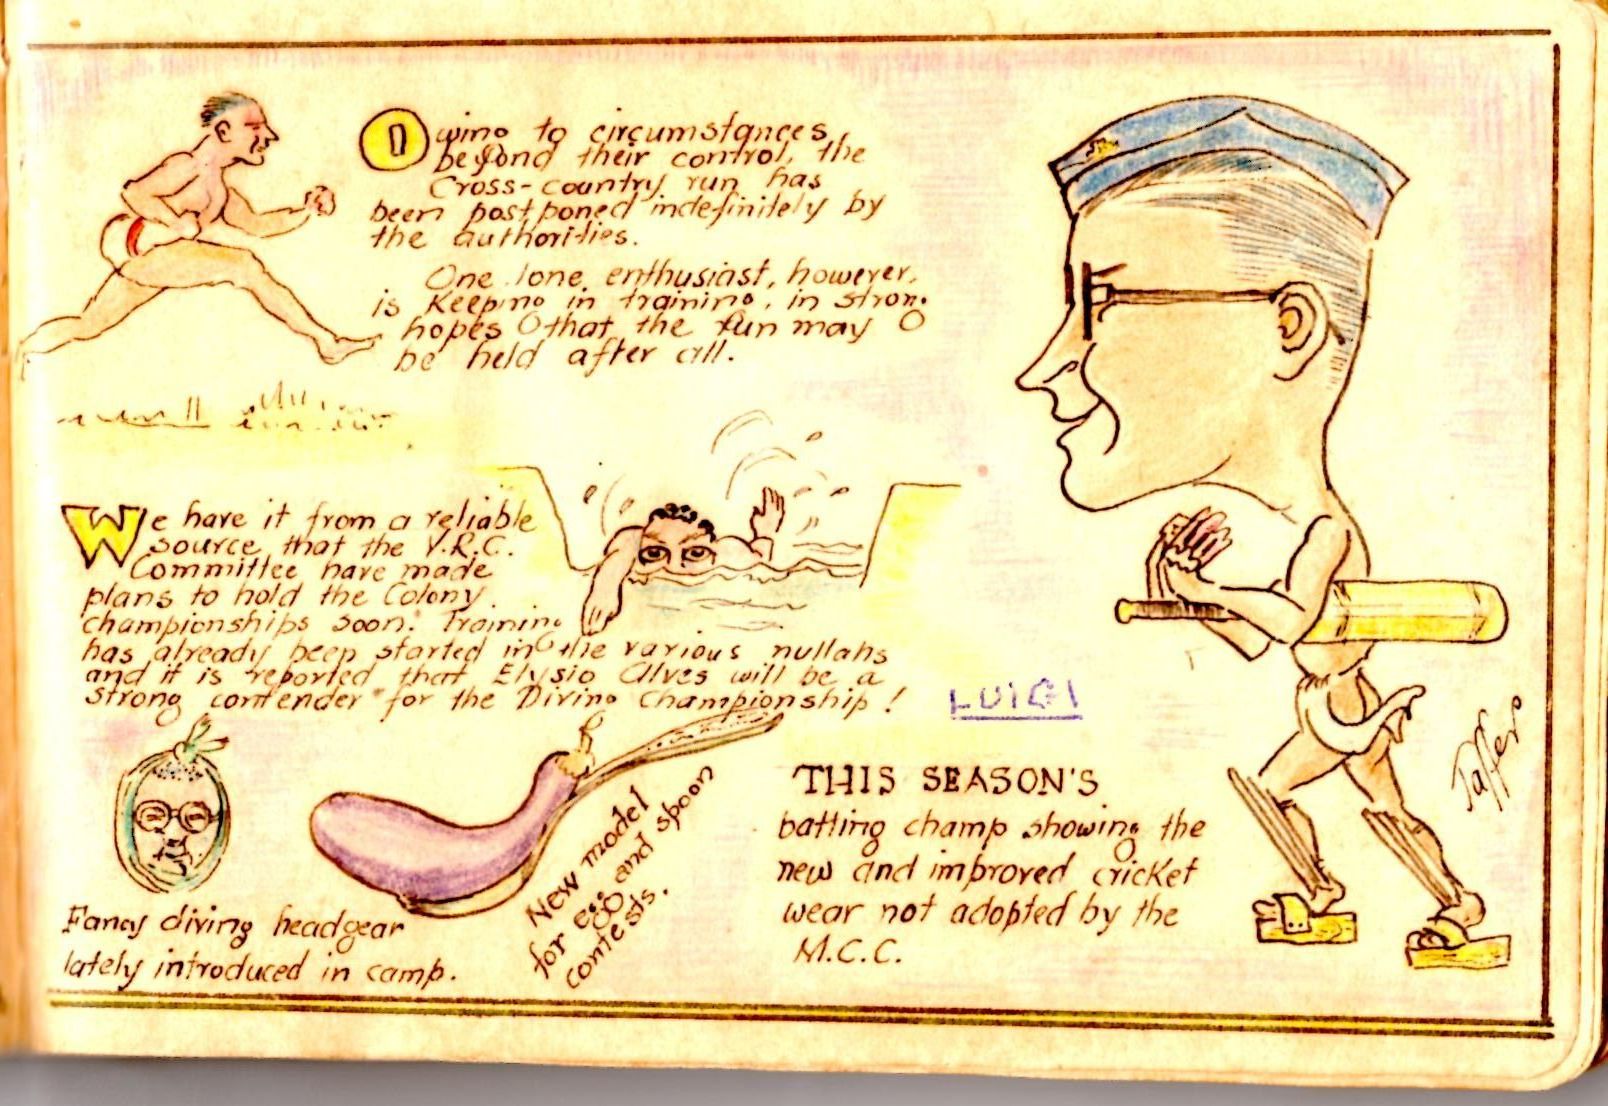 Owing to circumstances
beyond their control, the
Cross-country run has
been postponed indefinitely by
the authorities.
One lone enthusiast, however,
is keeping in training, in strong
hopes that the run may
be held after all.
We have it from a reliable
source that the V.R.C.
Committee have made
plans to hold the Colony
championships soon. Training
has already been started in the various nullahs
and it is reported that Elysio Alves will be a
strong contender for the Diving Championship!
LUIGI
Fancy diving headgear
lately introduced in camp.
New model
for egg and spoon
contests.
THIS SEASON'S
batting champ showing the
new and improved cricket
wear not adopted by the
M.C.C.